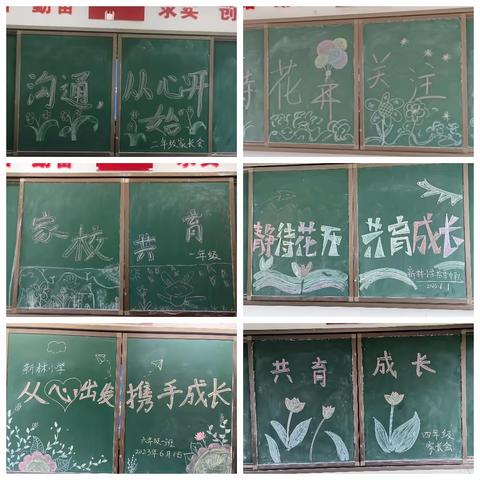 求实 创
沟通 从心开
始
二年级家长会
待花开 关注
家校共育
一年级
静待花开 共育成长
新林小学
2023.6.1
新林小学
从心出发 携手成长
六年级一班
2023年6月1日
共育 成长
四年级
家长会